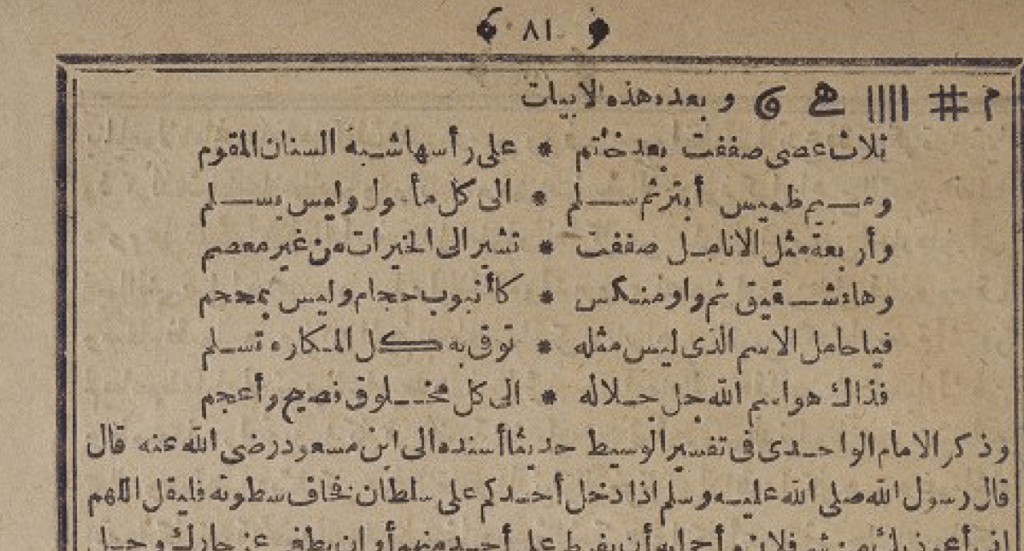 ٨١
م # |||| ﻫ و وبعده هذه الابيات
ثلاث عصى صففت بعد خاتم * على رأسها شبه السنان المقوم
وميم طميس أبتر ثم سلم * الى كل مأمول وليس بسلم
وأربعة مثل الانامل صففت * تشير الى الخيرات من غير معصم
وهاء شقيق ثم واو منكس * كأنبوب حجام وليس بمحجم
فياحامل الاسم الذى ليس مثله * توقى به كل المكاره تسلم
فذاك هو اسم الله جل جلاله * الى كل مخلوق فصيح وأعجم
وذكر الامام الواحدى فى تفسير الوسيط حديثا أسنده الى ابن مسعود رضى الله عنه قال
قال رسول الله صلى الله عليه وسلم اذا دخل أحدكم على سلطان يخاف سطوته فليقل اللهم
انى أعوذ بك من شر فلان وأحزابه أن يفرط على أحد منهم أو ان يطغى عز جارك وجل